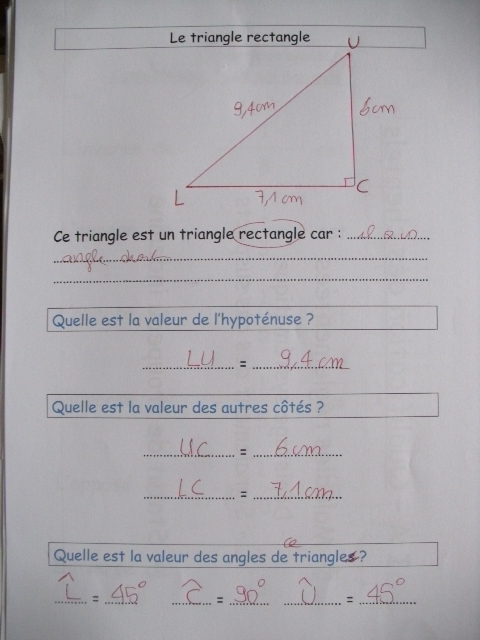 Le triangle rectangle
U
9,4 cm
6 cm
L
C
7,1 cm
Ce triangle est un triangle rectangle car : il a un
angle droit
Quelle est la valeur de l'hypoténuse ?
LU = 9,4 cm
Quelle est la valeur des autres côtés ?
UC = 6 cm
LC = 7,1 cm
Quelle est la valeur des angles de ce triangles ?
L̂ = 45° Ĉ = 90° Û = 45°